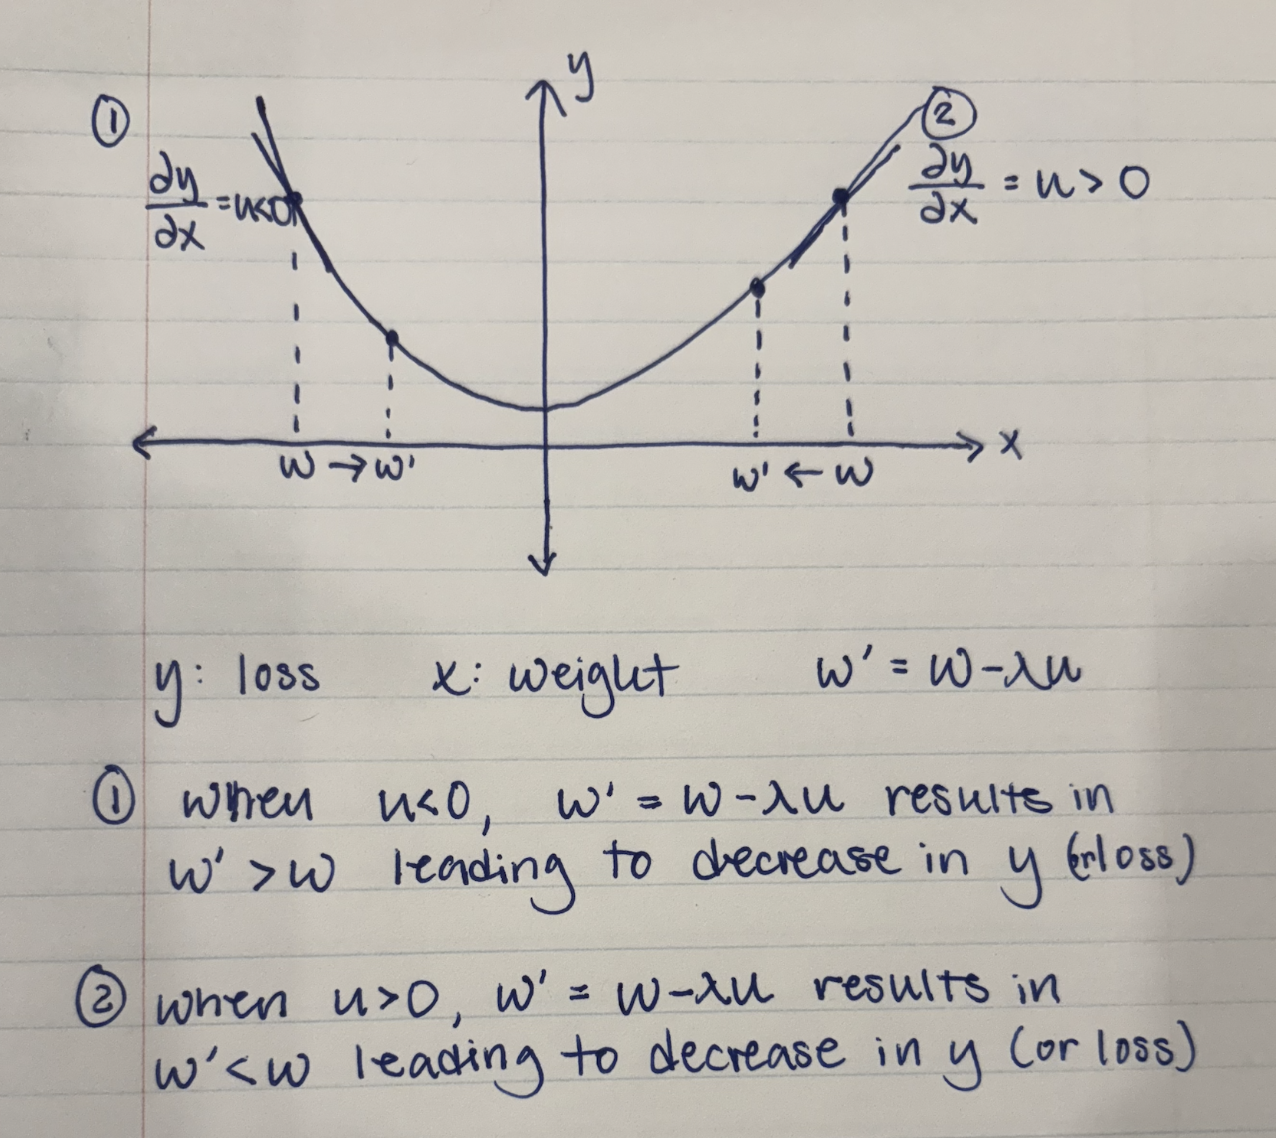 y
① ②
∂y/∂x = u<0
∂y/∂x = u > 0
x
w → w'
w' ← w
y: loss x: weight w' = w-λu
① when u<0, w' = w-λu results in
w' > w leading to decrease in y (or loss)
② when u>0, w' = w-λu results in
w' < w leading to decrease in y (or loss)